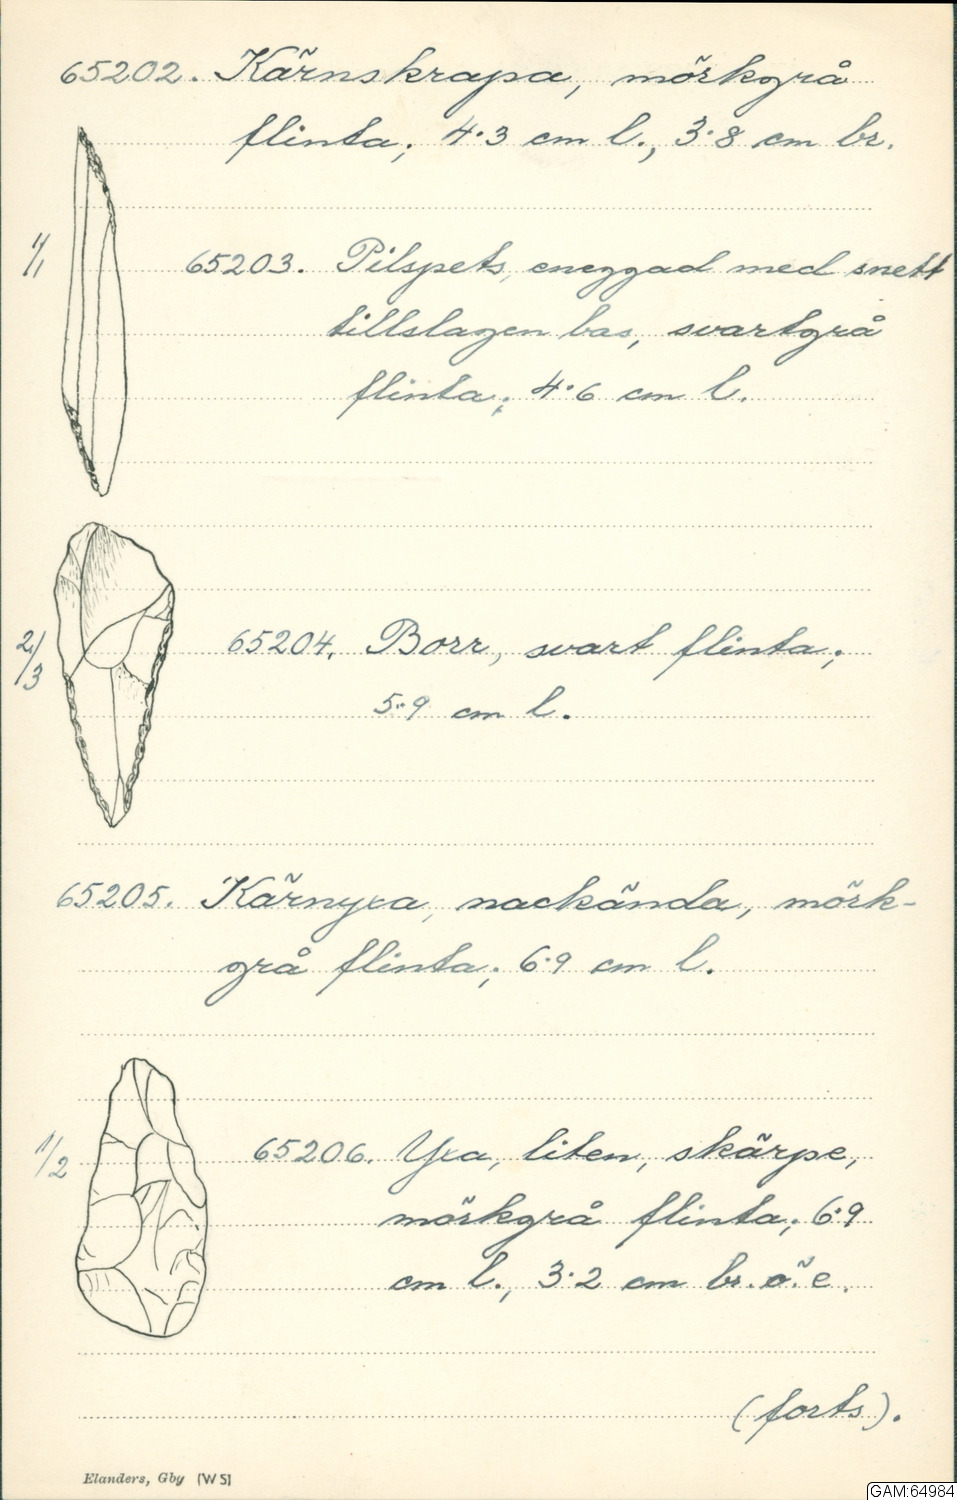 65202. Kärnskrapa, mörkgrå
flinta; 4·3 cm l., 3·8 cm br.
1/1
65203. Pilspets, eneggad med snett
tillslagen bas, svartgrå
flinta; 4·6 cm l.
2/3
65204. Borr, svart flinta;
5·9 cm l.
65205. Kärnyxa, nackända, mörk-
grå flinta; 6·9 cm l.
1/2
65206. Yxa, liten, skärpe,
mörkgrå flinta; 6·9
cm l., 3·2 cm br. ö. e.
(forts).
Elanders, Gby (W 5)
GAM:64984